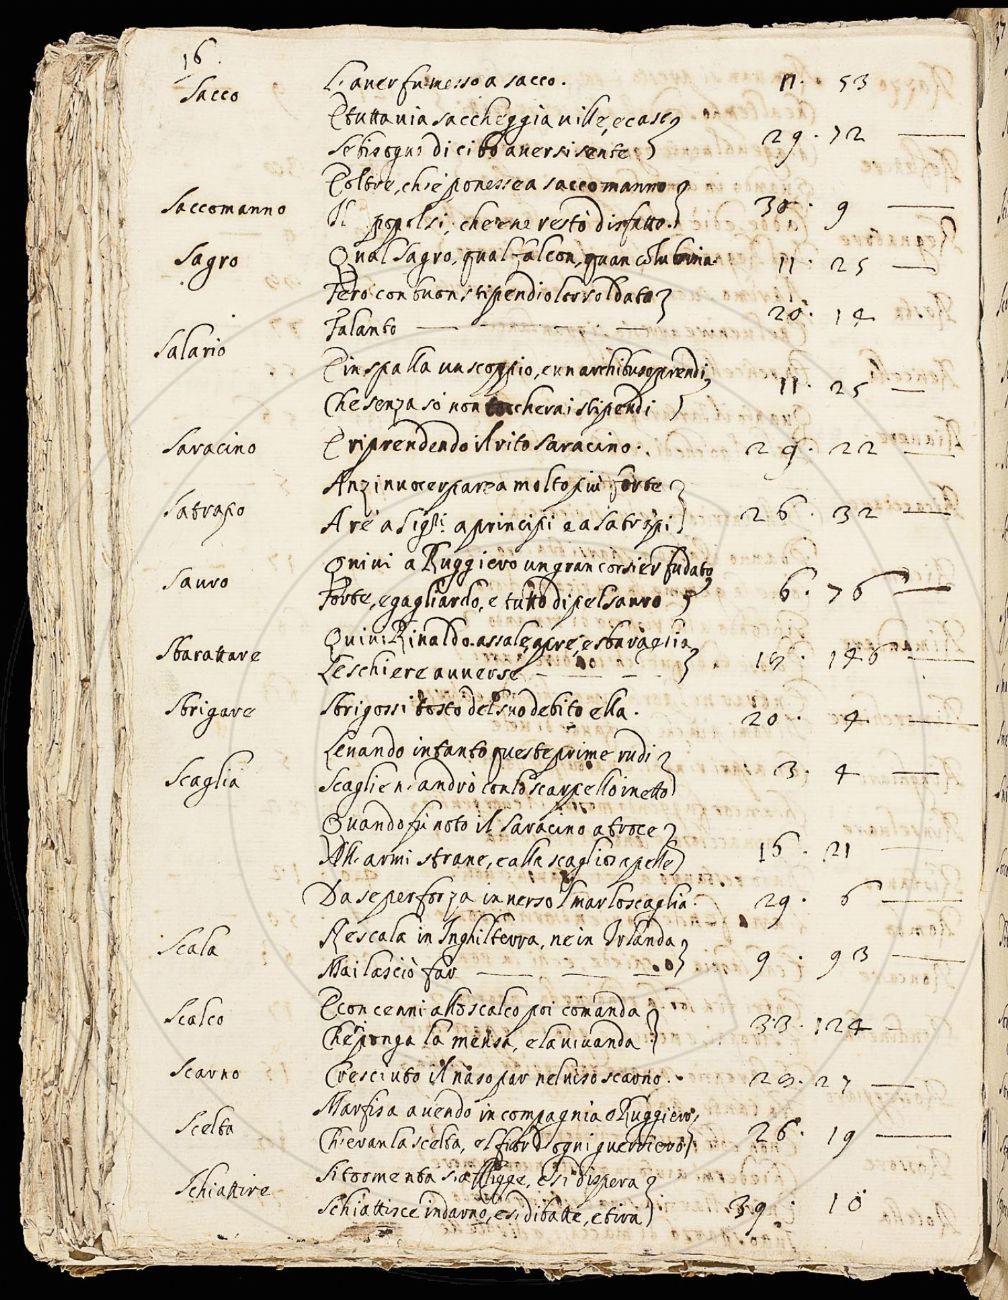 16.
Sacco L'aver fu messo a sacco. 11. 53
E tuttavia saccheggia ville, e case
Se bisogno di cibo aver si sente 29. 72
E oltre, che ponesse a saccomanno
Saccomanno Il popol si, che ne restò disfatto. 9
Sagro Qual sagro, qual falcon, quan colubrina 11. 25
Però con buon stipendio lor soldato
Falanto 20. 14
Salario
E in spalla un scoppio, e un archibuso prendi
Che senza sò non toccherai stipendi 11. 25
Saracino E riprendendo il rito Saracino. 29. 22
Anzi nuocer parea molto più forte
Satrapo A re a sigri. a principi e a satrapi 26. 32
Quivi a Ruggiero un gran corsier fu dato
Sauro Forte, e gagliardo, e tutto di pel sauro 6. 76
Quivi Rinaldo assale, apre, e sbaraglia
Sbarattare Le schiere avverse
Sbrigare Sbrigossi tosto del suo debito ella. 20. 4
Levando intanto queste prime rudi
Scaglia Scaglie n'andrò con lo scarpello inetto 3. 4
Quando fù noto il Saracino atroce
All'armi strane, e alla scagliosa pelle 16. 21
Da se per forza in verso 'l mar lo scaglia. 29. 6
Scala Ne scala in Inghilterra, ne in Irlanda
Mai lasciò far 9. 93
Scalco E con cenni allo scalco poi comanda
Che ponga la mensa, e la vivanda 33. 124
Scarno Cresciuto il naso par nel viso scarno. 27
Marfisa avendo in compagnia e Ruggiero,
Scelta Ch'eran la scelta, e'l fior d'ogni guerriero 26. 19
Si tormenta s'afflige, e si dispera
Schiattire Schiattisce indarno, e si dibatte, e tira 39. 10